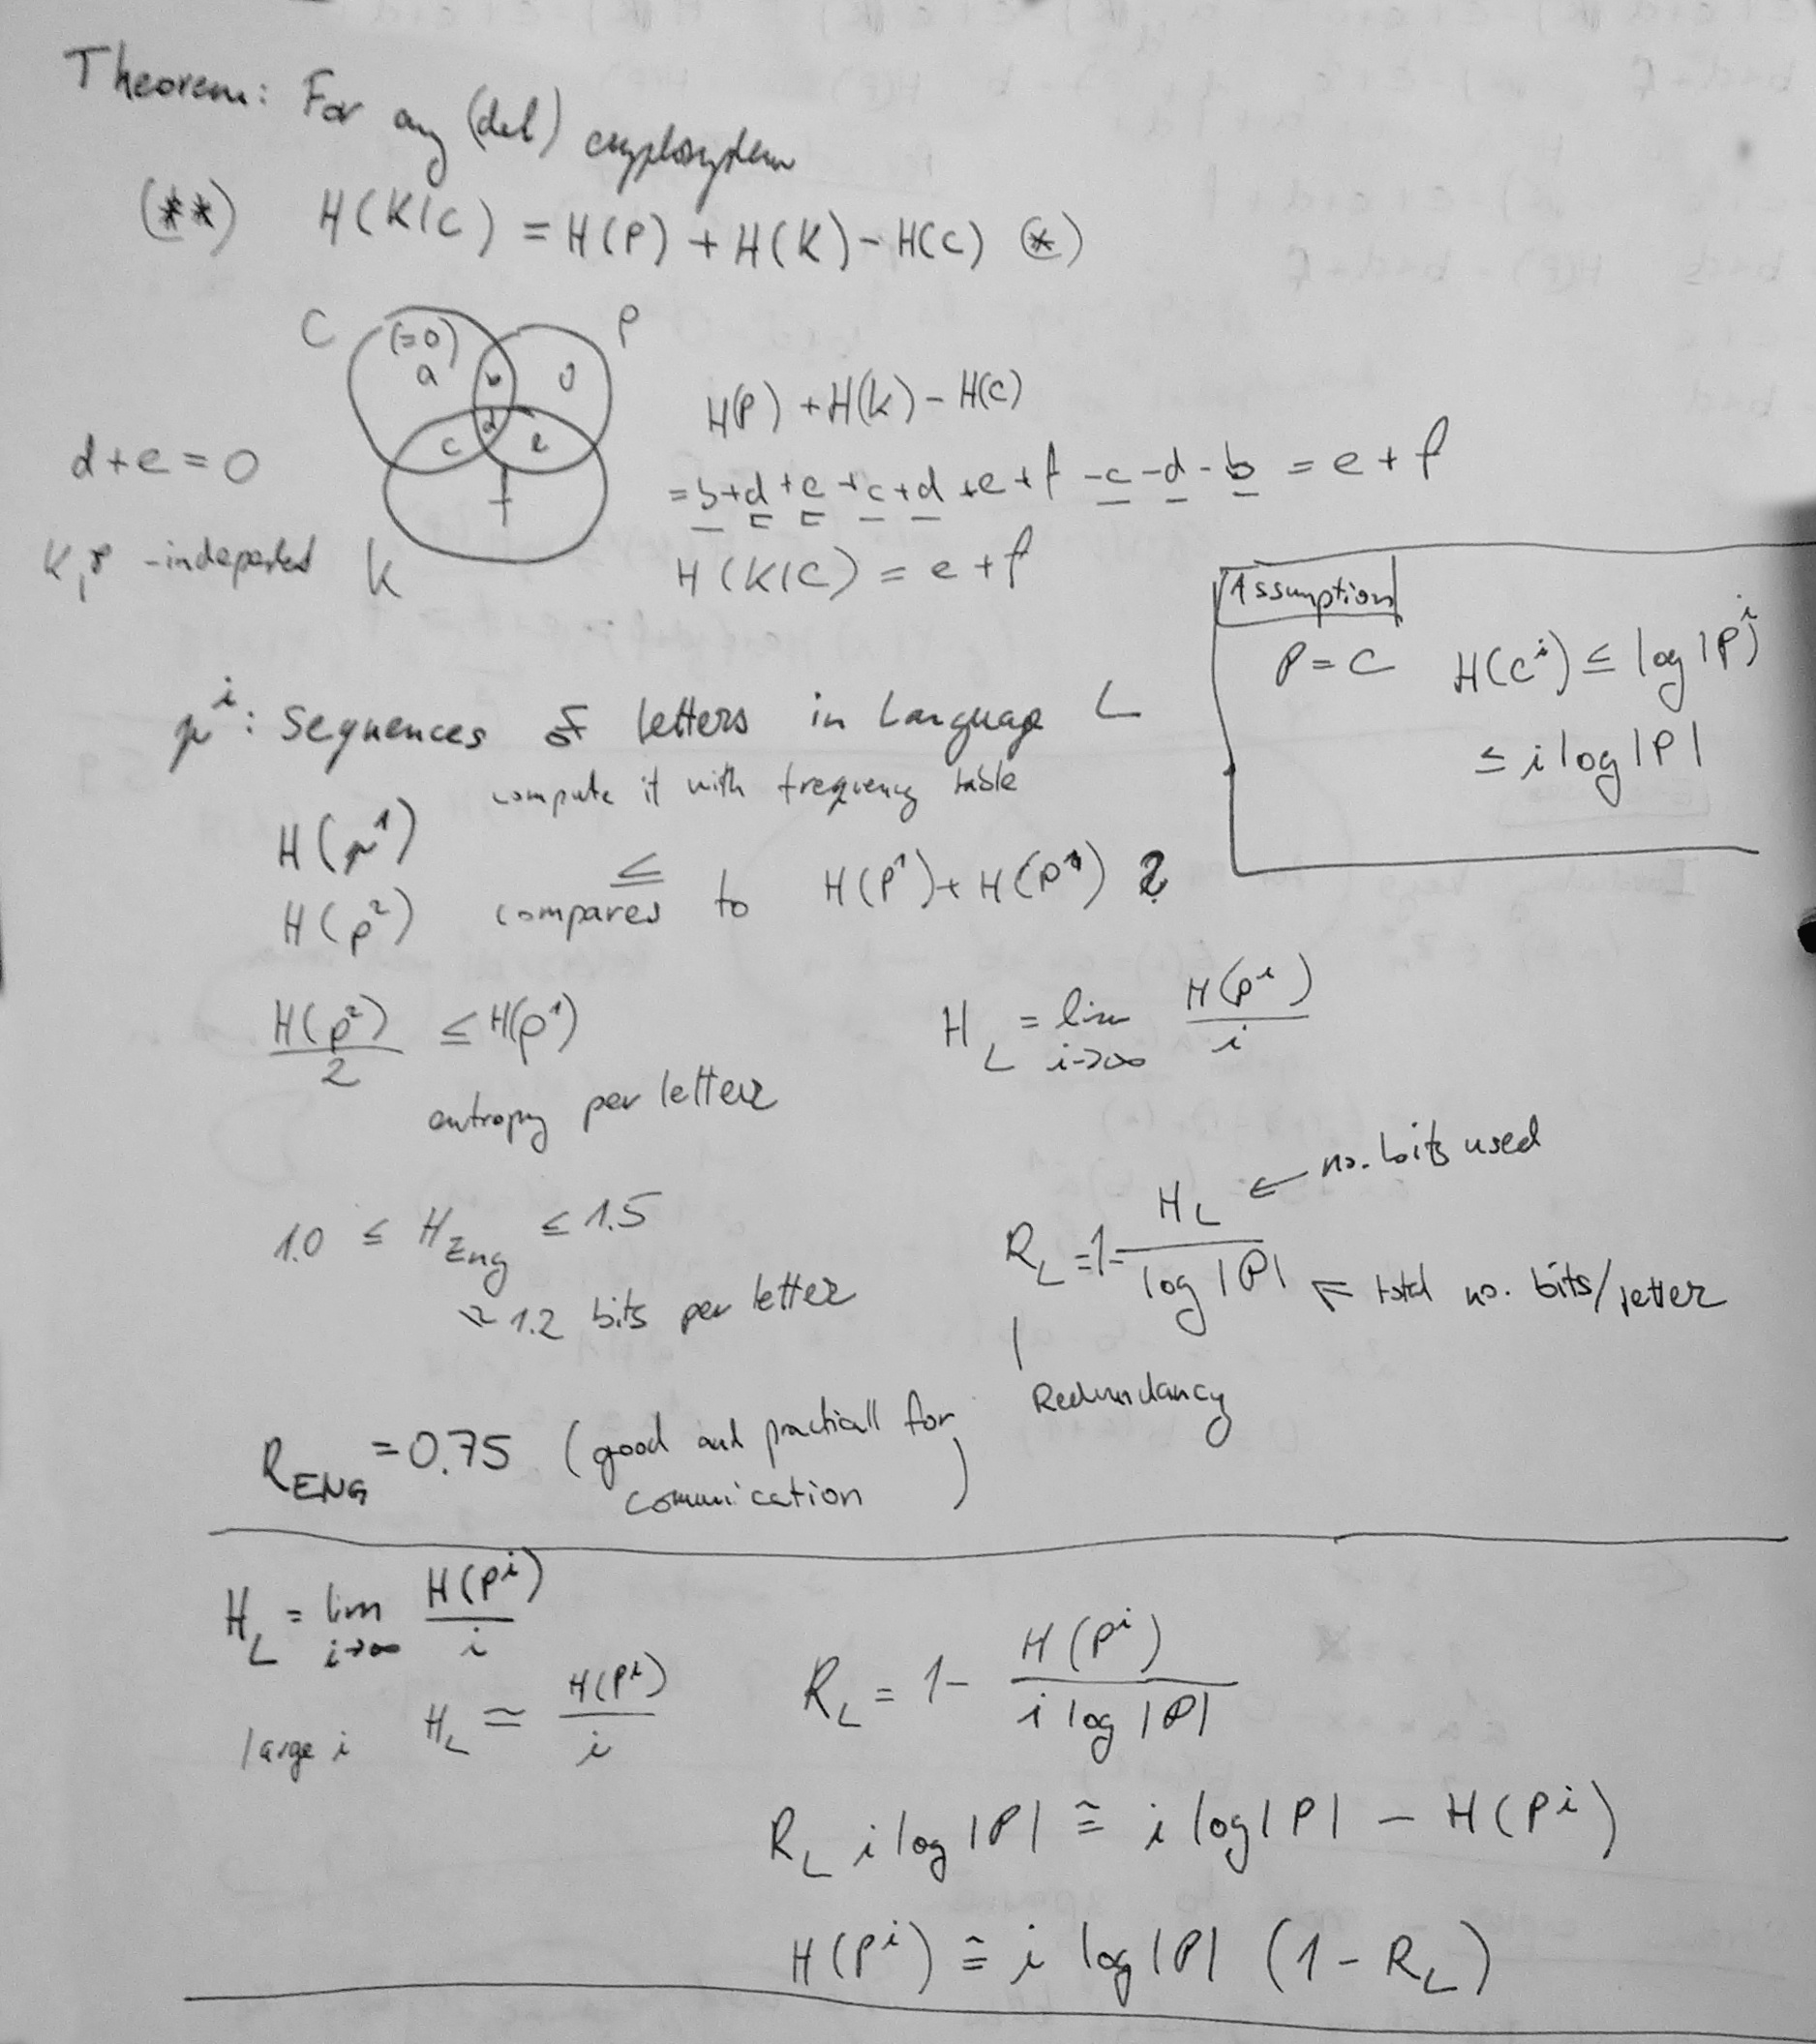 Theorem: For any (det) cryptosystem
(**) H(K|C) = H(P) + H(K) - H(C) (*)
C P
(=0)
a b 0
c d e
f
K
d+e = 0
K, P - independent
H(P) + H(K) - H(C)
= b+d+e+c+d+e+f -c-d-b = e+f
H(K|C) = e+f
Assumption
P = C H(C^i) ≤ log |P|^i
≤ i log |P|
p^i : Sequences of letters in language L
compute it with frequency table
H(p^1)
H(p^2) ≤ compares to H(P^1) + H(P^1) ?
H(p^2)/2 ≤ H(p^1)
entropy per letter
H_L = lim i→∞ H(p^i)/i
1.0 ≤ H_Eng ≤ 1.5
≈ 1.2 bits per letter
R_L = 1 - H_L / log |P|
← no. bits used
← total no. bits/letter
Redundancy
R_ENG = 0.75 (good and practicall for
communication)
H_L = lim i→∞ H(P^i)/i
large i H_L ≃ H(P^i)/i
R_L = 1 - H(P^i) / i log |P|
R_L i log |P| ≅ i log |P| - H(P^i)
H(P^i) ≅ i log |P| (1 - R_L)